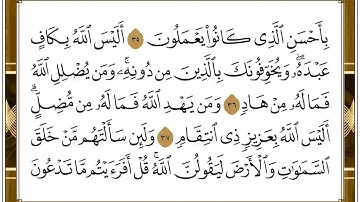 بِأَحْسَنِ ٱلَّذِى كَانُوا۟ يَعْمَلُونَ ٣٥ أَلَيْسَ ٱللَّهُ بِكَافٍ
عَبْدَهُۥ ۖ وَيُخَوِّفُونَكَ بِٱلَّذِينَ مِن دُونِهِۦ ۚ وَمَن يُضْلِلِ ٱللَّهُ
فَمَا لَهُۥ مِنْ هَادٍ ٣٦ وَمَن يَهْدِ ٱللَّهُ فَمَا لَهُۥ مِن مُّضِلٍّ ۗ
أَلَيْسَ ٱللَّهُ بِعَزِيزٍ ذِى ٱنتِقَامٍ ٣٧ وَلَئِن سَأَلْتَهُم مَّنْ خَلَقَ
ٱلسَّمَٰوَٰتِ وَٱلْأَرْضَ لَيَقُولُنَّ ٱللَّهُ ۚ قُلْ أَفَرَءَيْتُم مَّا تَدْعُونَ